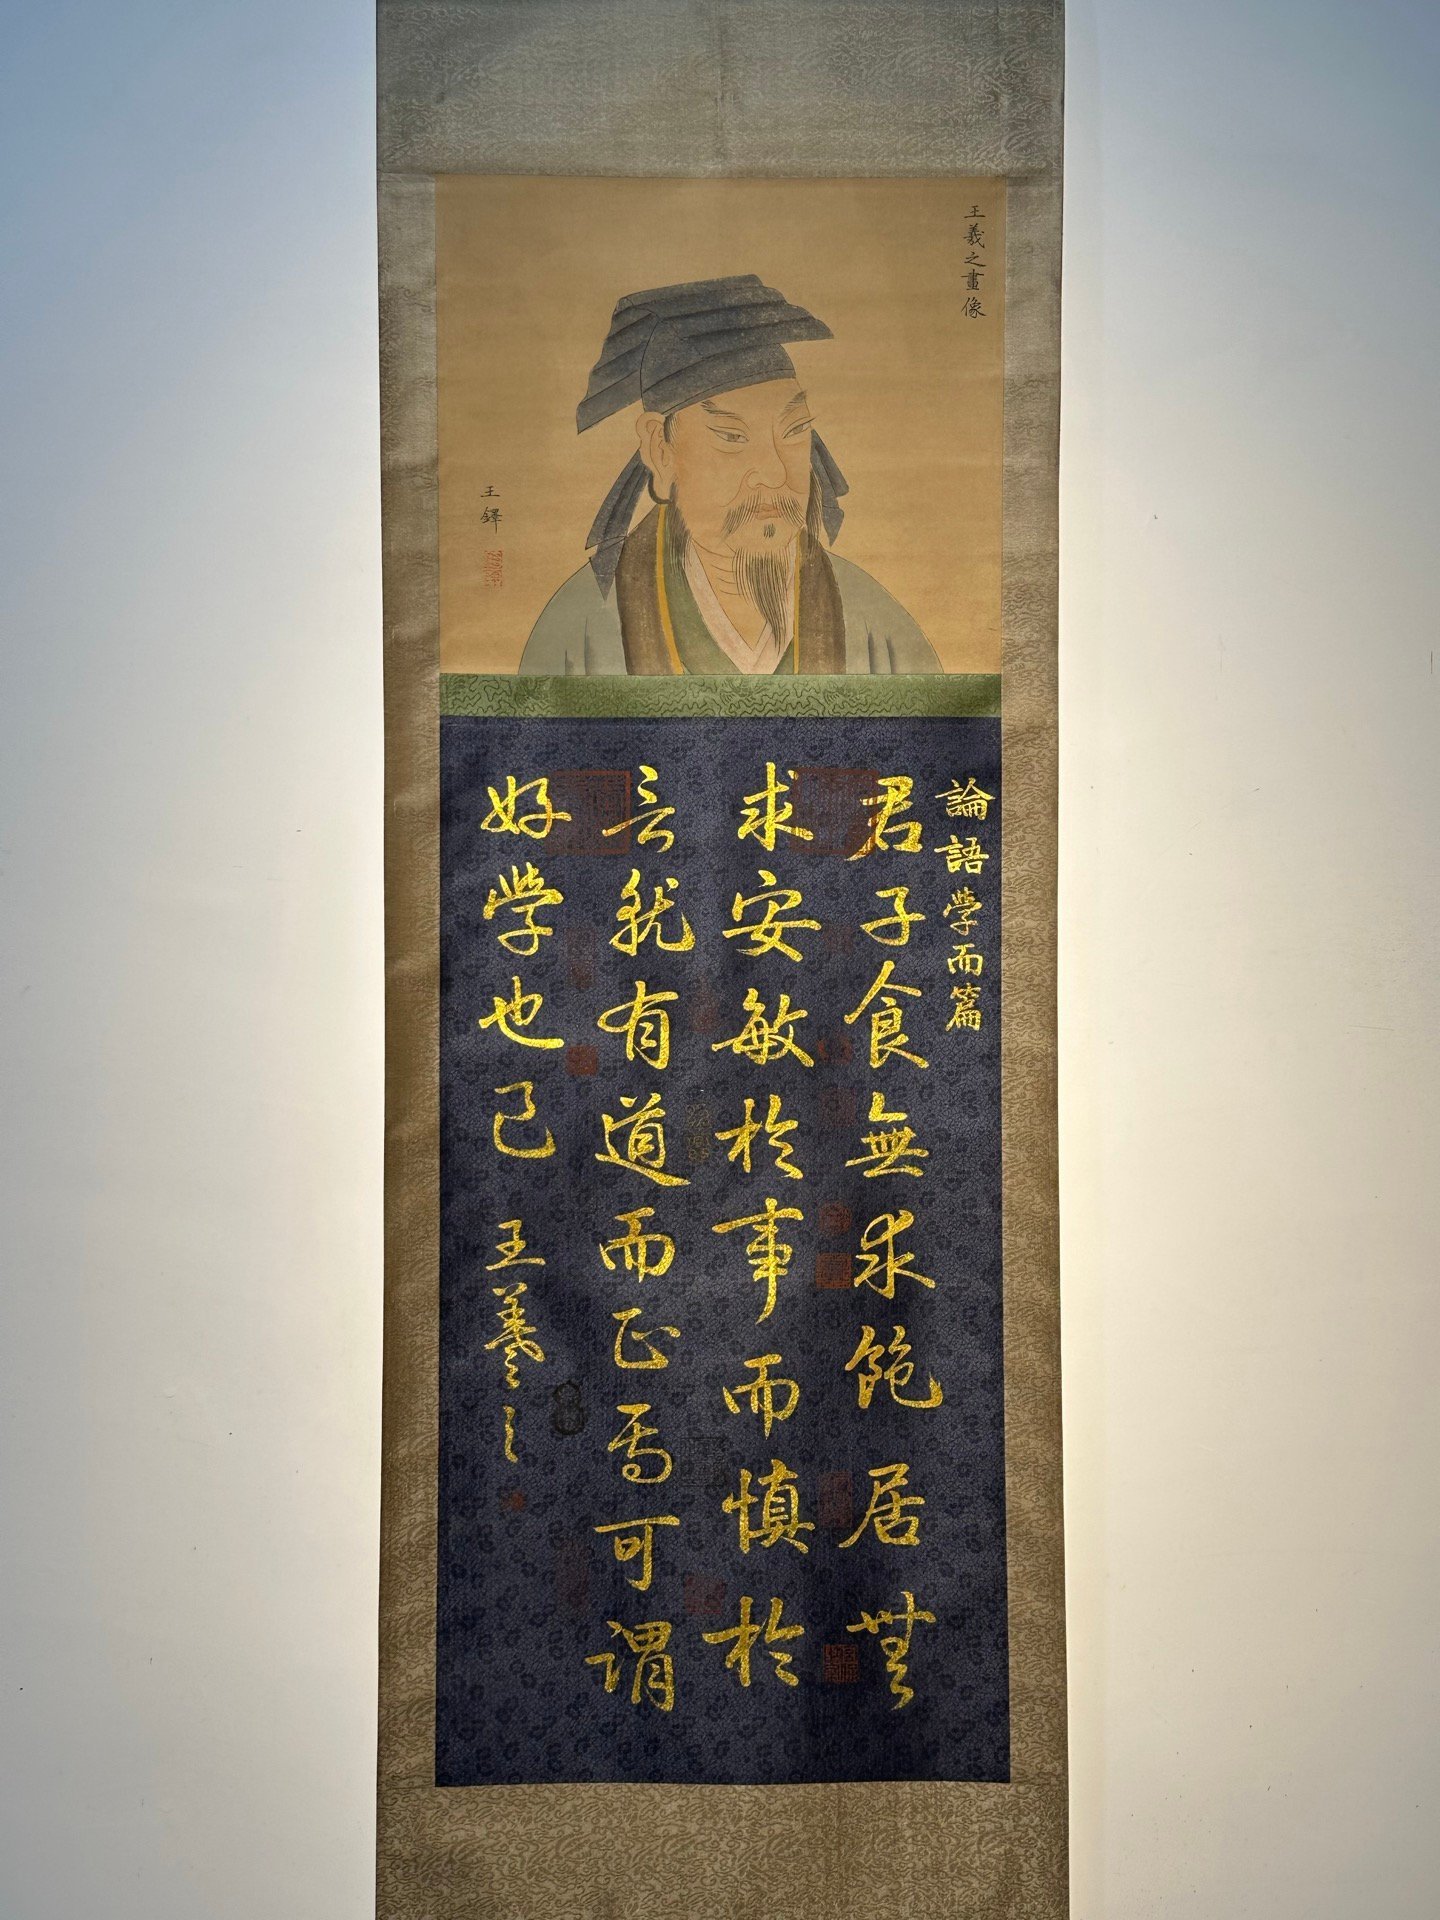 王羲之畫像
王鐸
論語學而篇
君子食無求飽居無
求安敏於事而慎於
言就有道而正焉可謂
好学也已 王羲之